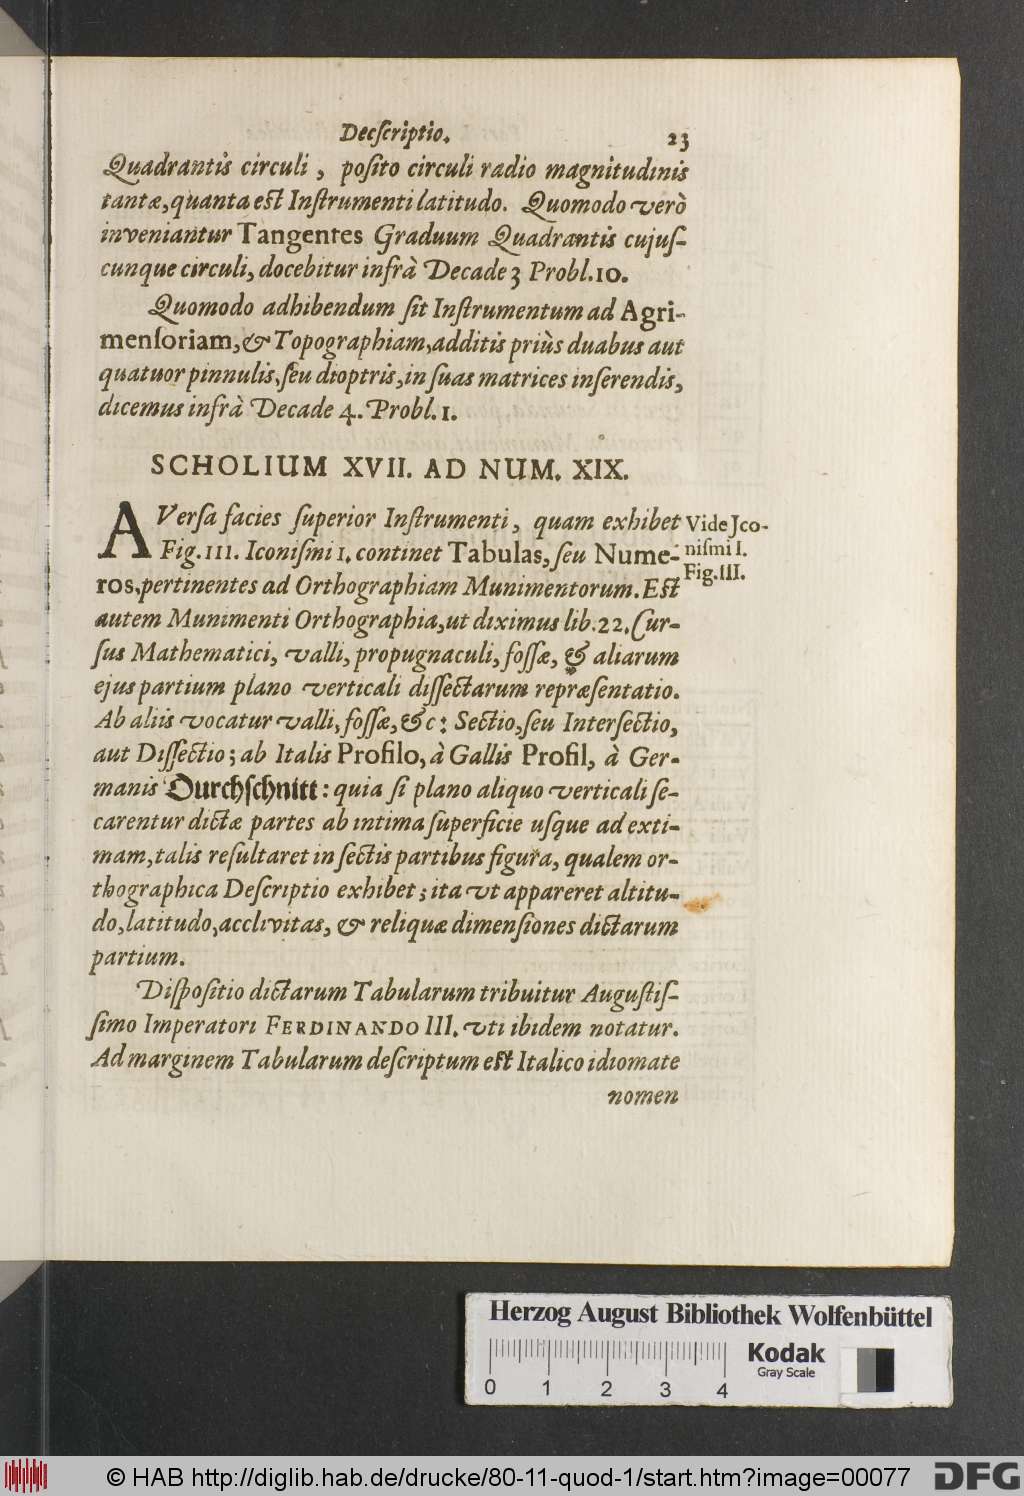 Decſcriptio. 23
Quadrantis circuli, poſito circuli radio magnitudinis
tantæ, quanta eſt Inſtrumenti latitudo. Quomodo verò
inveniantur Tangentes Graduum Quadrantis cujuſ-
cunque circuli, docebitur infrà Decade 3 Probl. 10.
Quomodo adhibendum ſit Inſtrumentum ad Agri-
menſoriam, & Topographiam, additis priùs duabus aut
quatuor pinnulis, ſeu dioptris, in ſuas matrices inſerendis,
dicemus infrà Decade 4. Probl. 1.
SCHOLIUM XVII. AD NUM. XIX.
AVerſa facies ſuperior Inſtrumenti, quam exhibet
Fig. III. Iconiſmi I. continet Tabulas, ſeu Nume-
ros, pertinentes ad Orthographiam Munimentorum. Eſt
autem Munimenti Orthographia, ut diximus lib. 22. Cur-
ſus Mathematici, valli, propugnaculi, foſſæ, & aliarum
ejus partium plano verticali diſſectarum repræſentatio.
Ab aliis vocatur valli, foſſæ, &c: Sectio, ſeu Interſectio,
aut Diſſectio; ab Italis Profilo, à Gallis Profil, à Ger-
manis Durchſchnitt: quia ſi plano aliquo verticali ſe-
carentur dictæ partes ab intima ſuperficie uſque ad exti-
mam, talis reſultaret in ſectis partibus figura, qualem or-
thographica Deſcriptio exhibet; ita vt appareret altitu-
do, latitudo, acclivitas, & reliquæ dimenſiones dictarum
partium.
Diſpoſitio dictarum Tabularum tribuitur Auguſtiſ-
ſimo Imperatori FERDINANDO III. vti ibidem notatur.
Ad marginem Tabularum deſcriptum eſt Italico idiomate
nomen
Vide Jco-
niſmi I.
Fig. III.
Herzog August Bibliothek Wolfenbüttel
Kodak
Gray Scale
0 1 2 3 4
© HAB http://diglib.hab.de/drucke/80-11-quod-1/start.htm?image=00077
DFG